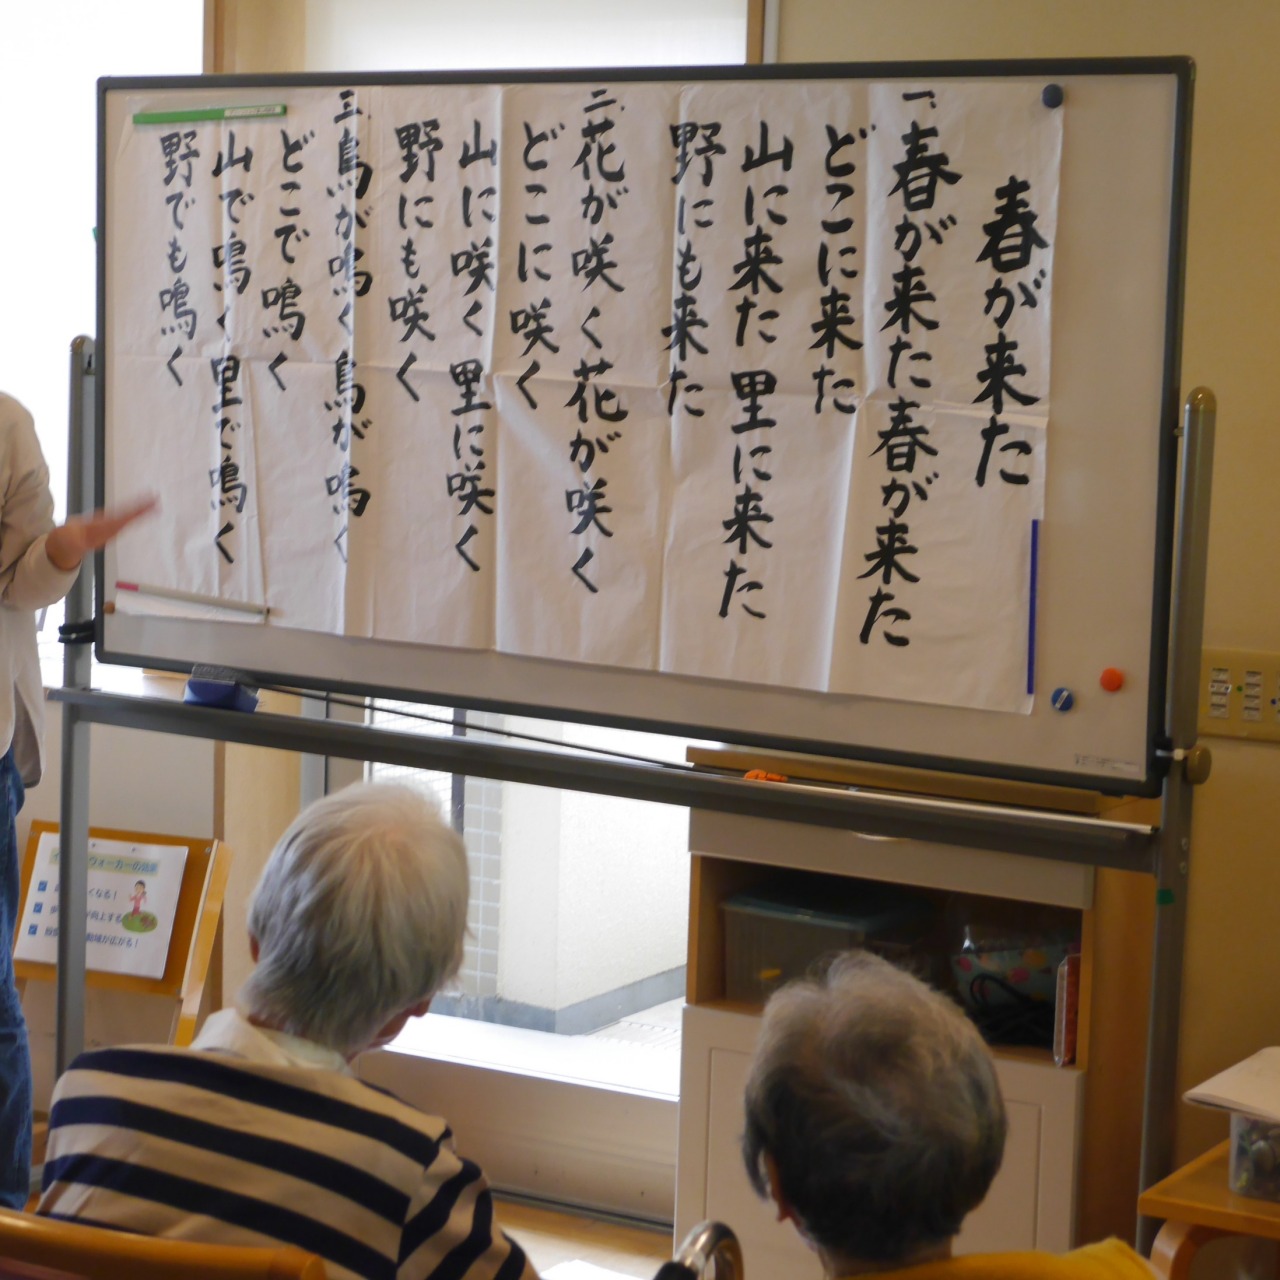 春が来た
一、春が来た 春が来た
どこに来た
山に来た 里に来た
野にも来た
二、花が咲く 花が咲く
どこに咲く
山に咲く 里に咲く
野にも咲く
三、鳥が鳴く 鳥が鳴く
どこで鳴く
山で鳴く 里で鳴く
野でも鳴く
ウォーカーの効果
くなる！
が向上する
動域が広がる！